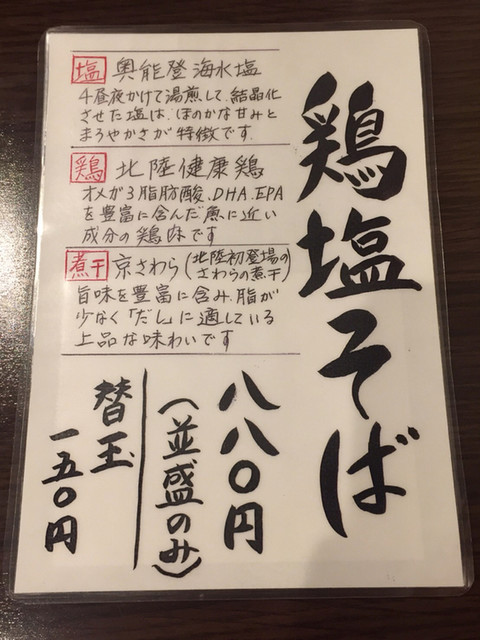 鶏塩そば
塩 奥能登海水塩
4昼夜かけて湯煎して、結晶化
させた塩は、ほのかな甘みと
まろやかさが特徴です。
鶏 北陸健康鶏
オメガ3脂肪酸、DHA、EPA
を豊富に含んだ魚に近い
成分の鶏肉です
煮干 京さわら(北陸初登場の
さわらの煮干)
旨味を豊富に含み、脂が
少なく「だし」に適している
上品な味わいです
八八〇円
(並盛のみ)
替玉
一五〇円